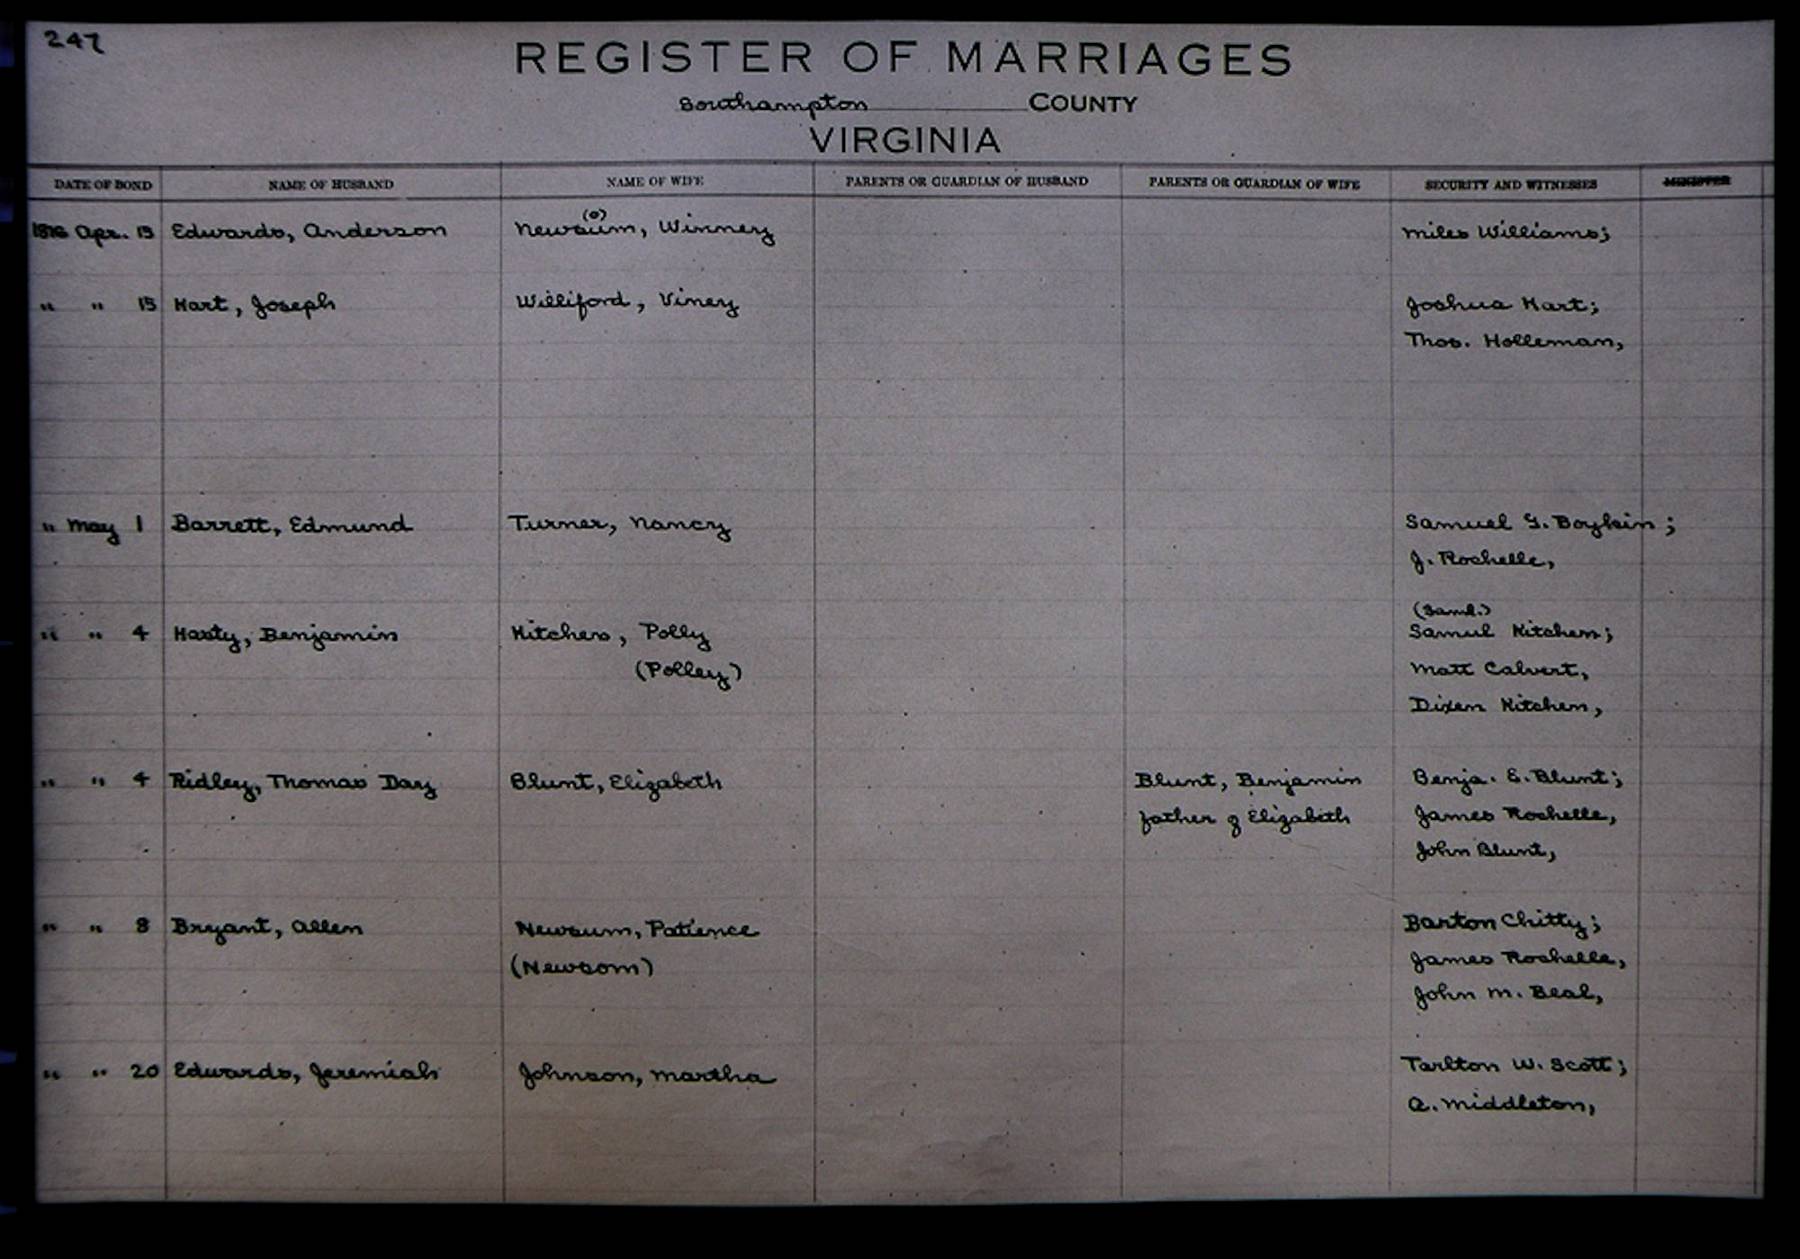 247
REGISTER OF MARRIAGES
Southampton COUNTY
VIRGINIA
DATE OF BOND NAME OF HUSBAND NAME OF WIFE PARENTS OR GUARDIAN OF HUSBAND PARENTS OR GUARDIAN OF WIFE SECURITY AND WITNESSES MINISTER
(o)
1816 Apr. 15 Edwards, Anderson Newsum, Winney Miles Williams;
" " 15 Hart, Joseph Williford, Viney Joshua Hart;
Thos. Holleman,
" May 1 Barrett, Edmund Turner, Nancy Samuel G. Boykin;
J. Rochelle,
(Saml.)
" " 4 Hasty, Benjamin Kitchens, Polly Samul Kitchen;
(Polley) Matt Calvert,
Dixen Kitchen,
" " 4 Ridley, Thomas Day Blunt, Elizabeth Blunt, Benjamin Benja. E. Blunt;
father of Elizabeth James Rochelle,
John Blunt,
" " 8 Bryant, Allen Newsum, Patience Barton Chitty;
(Newsom) James Rochelle,
John M. Beal,
" " 20 Edwards, Jeremiah Johnson, Martha Tarlton W. Scott;
A. Middleton,